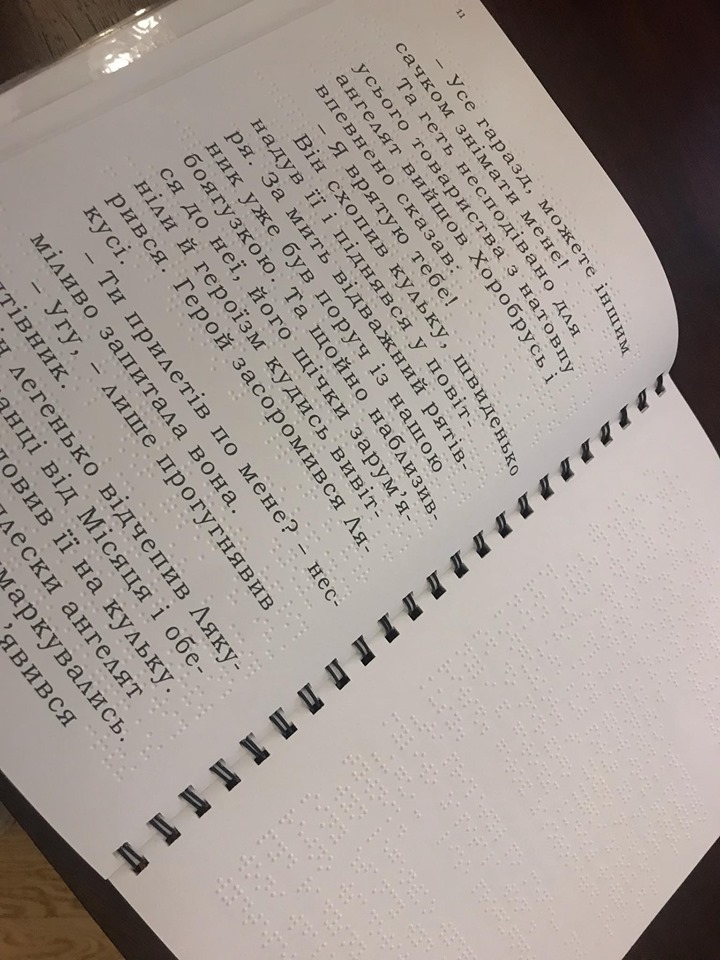 11
– Усе гаразд, можете іншим
сачком знімати мене!
Та геть несподівано для
усього товариства з натовпу
ангелят вийшов Хоробрусь і
впевнено сказав:
– Я врятую тебе!
Він схопив кульку, швиденько
надув її і піднявся у повіт-
ря. За мить відважний рятів-
ник уже був поруч із нашою
боягузкою. Та щойно наблизив-
ся до неї, його щічки зарум’я-
ніли й героїзм кудись вивіт-
рився. Герой засоромився Ля-
кусі.
– Ти прилетів по мене? – нес-
міливо запитала вона.
– Угу, – лише прогугнявив
рятівник.
легенько відчепив Ляку-
від Місяця і обе-
її на кульку.
ангелят
’явився